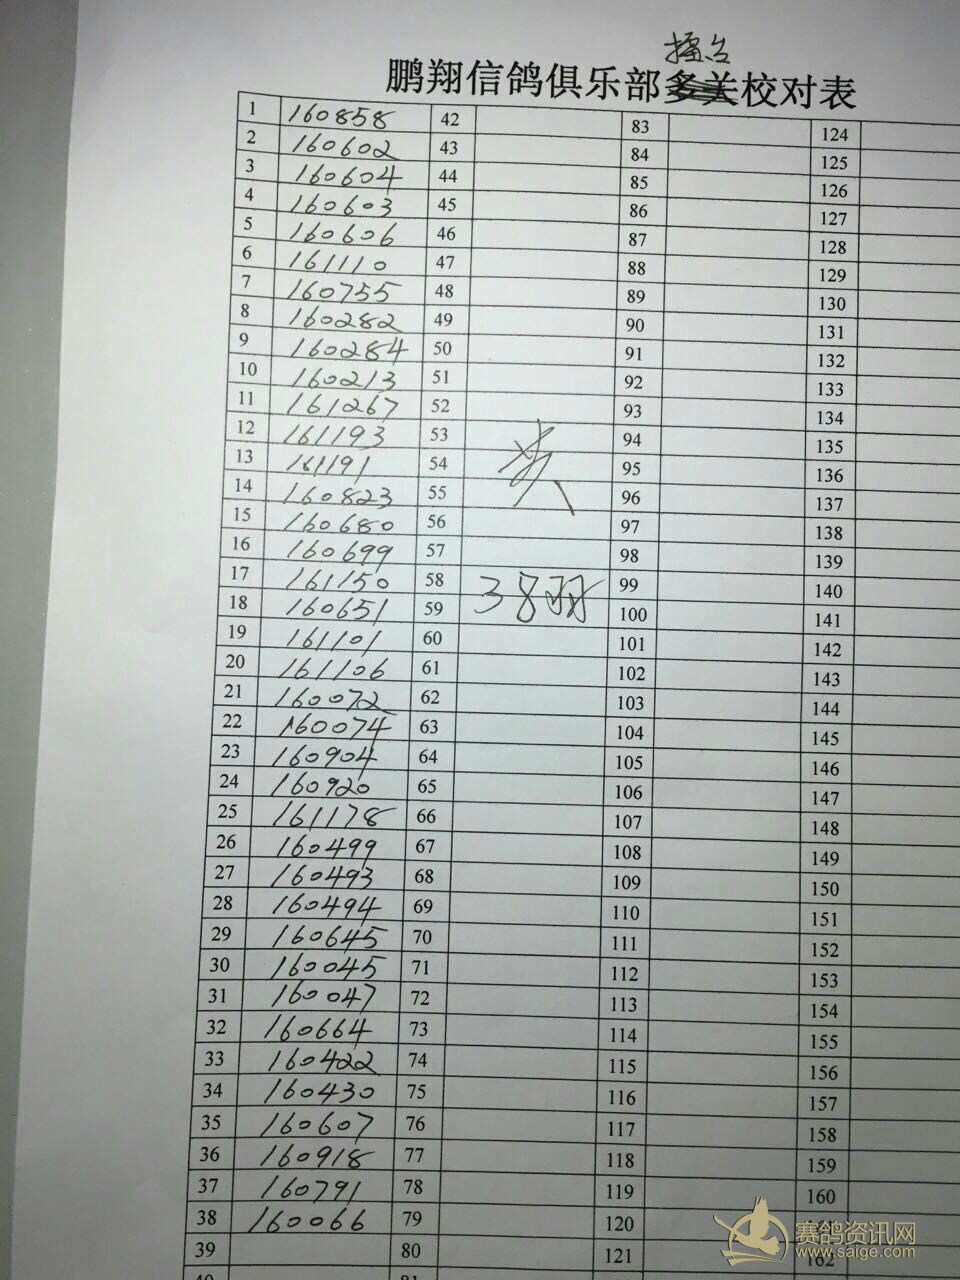 擂台
鹏翔信鸽俱乐部多关校对表
1 160858 42 83 124
2 160602 43 84 125
3 160604 44 85 126
4 160603 45 86 127
5 160606 46 87 128
6 161110 47 88 129
7 160755 48 89 130
8 160282 49 90 131
9 160284 50 91 132
10 160213 51 92 133
11 161267 52 93 134
12 161193 53 94 135
13 161191 54 95 136
14 160823 55 96 137
15 160680 56 97 138
16 160699 57 98 139
17 161150 58 38羽 99 140
18 160651 59 100 141
19 161101 60 101 142
20 161106 61 102 143
21 160072 62 103 144
22 160074 63 104 145
23 160904 64 105 146
24 160920 65 106 147
25 161178 66 107 148
26 160499 67 108 149
27 160493 68 109 150
28 160494 69 110 151
29 160645 70 111 152
30 160045 71 112 153
31 160047 72 113 154
32 160664 73 114 155
33 160422 74 115 156
34 160430 75 116 157
35 160607 76 117 158
36 160918 77 118 159
37 160791 78 119 160
38 160066 79 120
39 80 121 162
40 81
赛鸽资讯网
www.saige.com